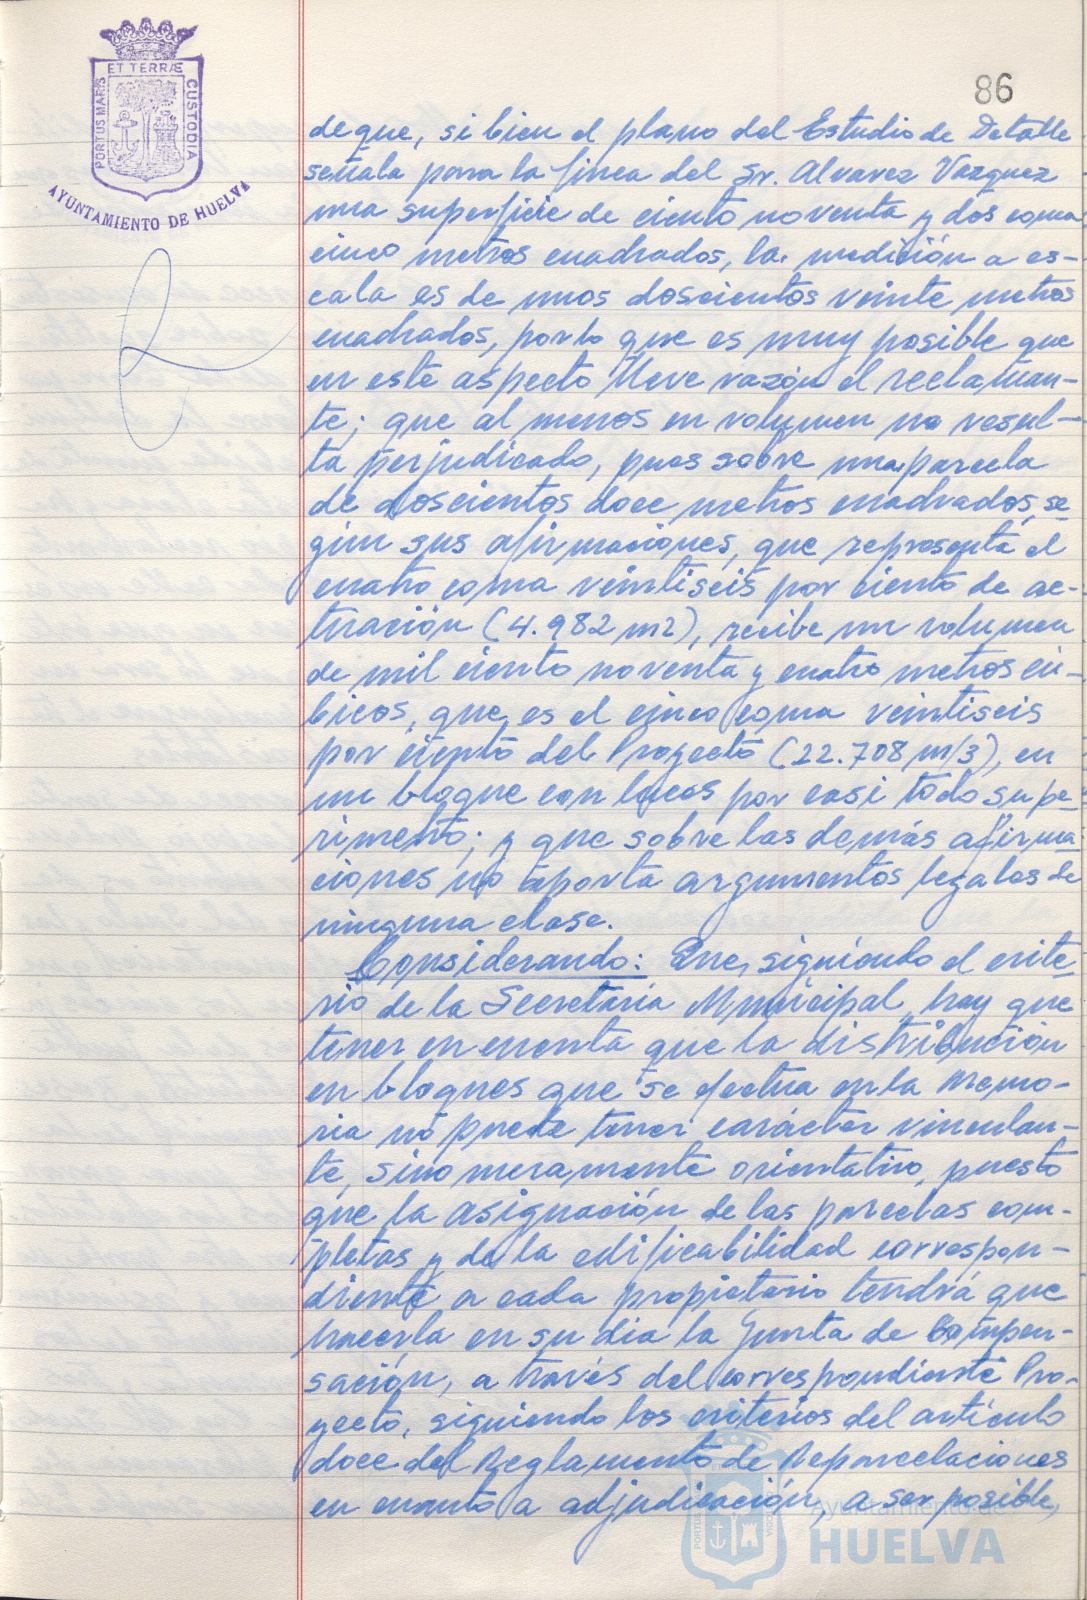 86
ET TERRÆ
PORTUS MARIS
CUSTODIA
AYUNTAMIENTO DE HUELVA
de que, si bien el plano del Estudio de Detalle
señala para la finca del Sr. Alvarez Vazquez
una superficie de ciento noventa y dos coma
cinco metros cuadrados, la medición a es-
cala es de unos doscientos veinte metros
cuadrados, por lo que es muy posible que
en este aspecto lleve razón el reclaman-
te; que al menos en volumen no resul-
ta perjudicado, pues sobre una parcela
de doscientos doce metros cuadrados, se-
gún sus afirmaciones, que representa el
cuatro coma veintiseis por ciento de ac-
tuación (4.982 m2), recibe un volumen
de mil ciento noventa y cuatro metros cú-
bicos, que es el cinco coma veintiseis
por ciento del Proyecto (22.708 m/3), en
un bloque con luces por casi todo su pe-
rimetro; y que sobre las demás afirma-
ciones no aporta argumentos legales de
ninguna clase.
Considerando: Que, siguiendo el crite-
rio de la Secretaria Municipal, hay que
tener en cuenta que la distribución
en bloques que se efectua en la Memo-
ria no puede tener carácter vinculan-
te, sino meramente orientativo, puesto
que la asignación de las parcelas com-
pletas y de la edificabilidad correspon-
diente a cada propietario tendrá que
hacerla en su dia la Junta de Compen-
sación, a través del correspondiente Pro-
yecto, siguiendo los criterios del artículo
doce del Reglamento de Reparcelaciones
en cuanto a adjudicación, a ser posible,
Ayuntamiento de
HUELVA